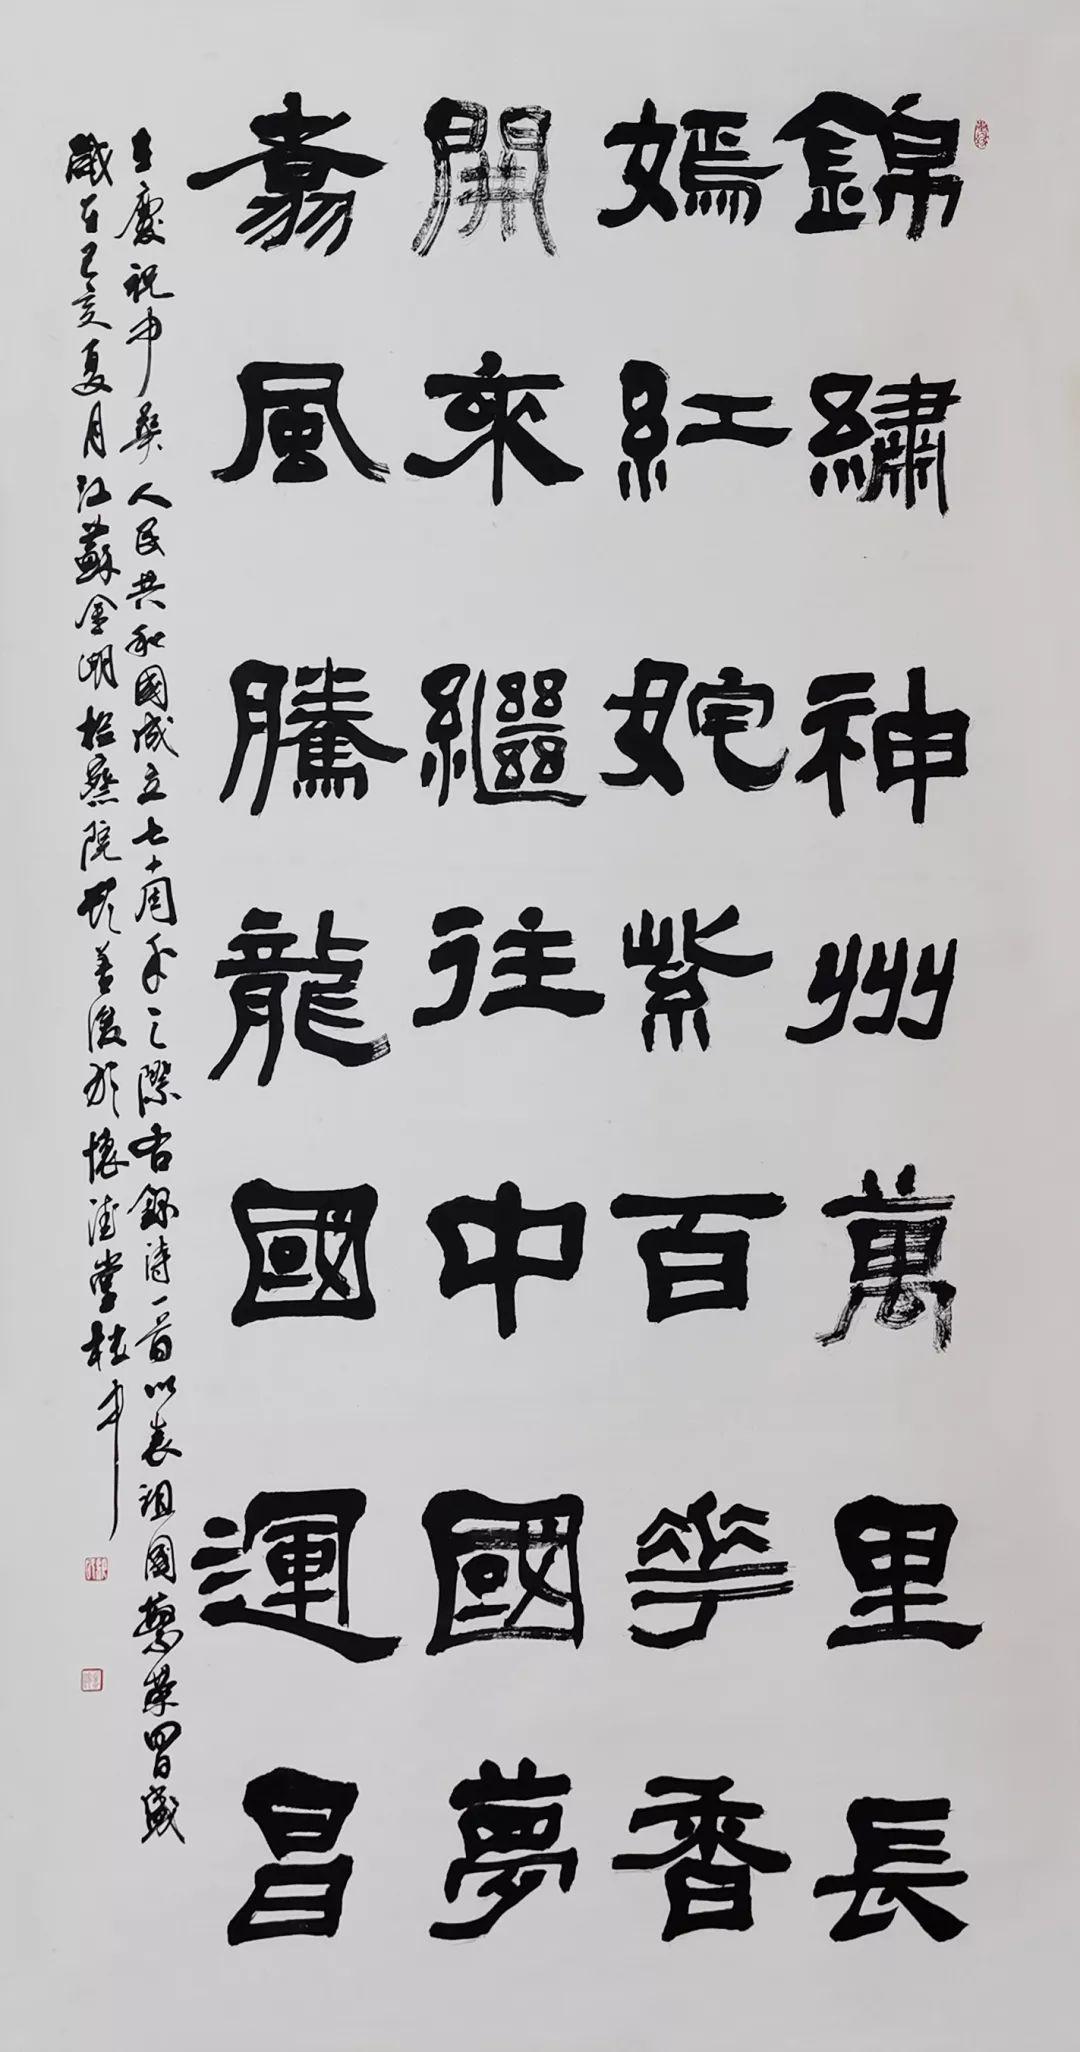 錦繡神州萬里長
嫣紅姹紫百花香
開來繼往中國夢
翥風騰龍國運昌
慶祝中華人民共和國成立七十周年之際右錄詩一首以表祖國繁榮昌盛
歲在己亥夏月江蘇金湖 院 善後於懷德堂桂中